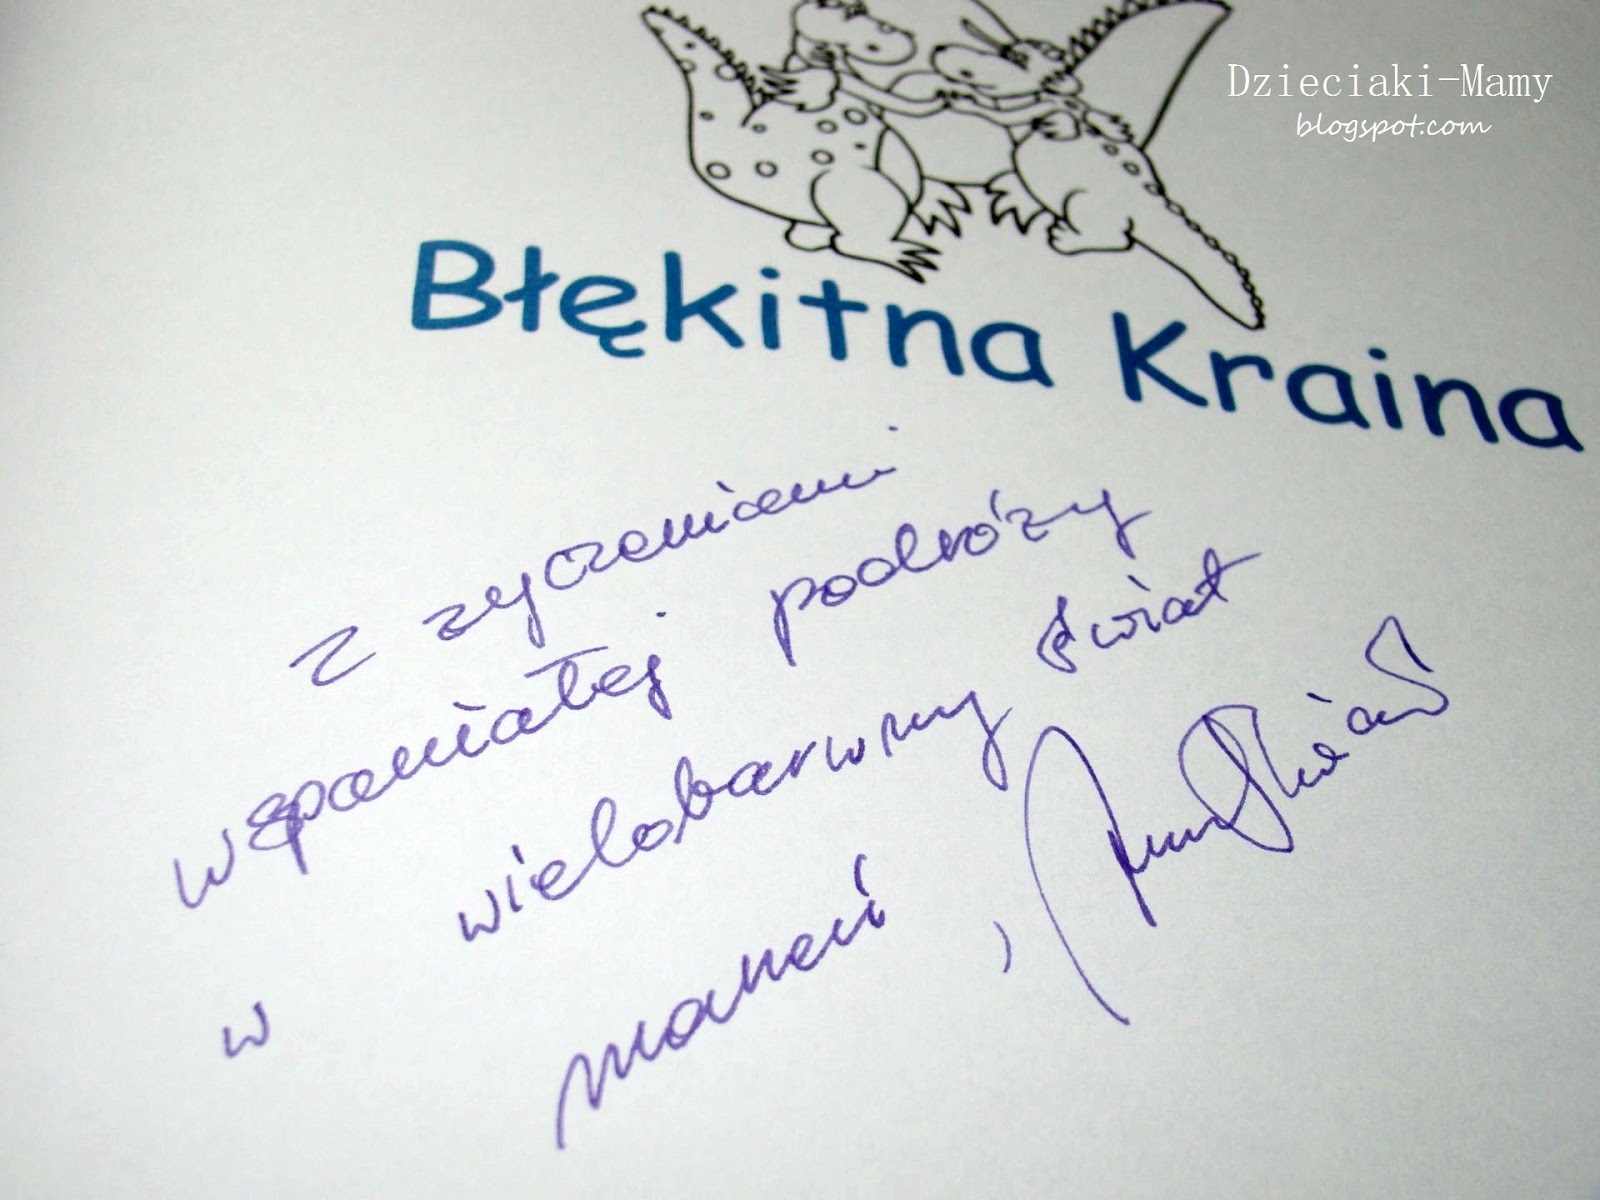 Dzieciaki-Mamy
blogspot.com
Błękitna Kraina
z życzeniami
wspaniałej podróży
w wielobarwny świat
marzeń